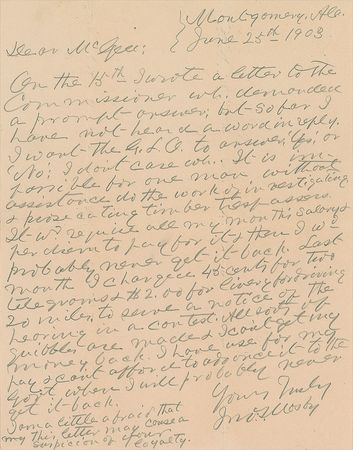 Montgomery, Ala.
June 25th 1903
Dear McGee:
On the 15th I wrote a letter to the
Commissioner wh. demanded
a prompt answer; but so far I
have not heard a word in reply.
I want the G.L.O. to answer, Yes, or
No; I dont care wh. It is im-
possible for one man, without
assistance do the work of investigating
& prosecuting timber trespassers.
It wd require all my month's salary &
per diem to pay for it & then I wd
probably never get it back. Last
month I charged 45 cents for two
telegrams & $2.00 for livery for driving
20 miles to serve a notice of the
hearing in a contest. All sorts of
quibbles are made & I cant get my
money back. I have use for my
pay & cant afford to advance it to the
Govt. when I will probably never
get it back.
Yours Truly
Jno. S. Mosby
I am a little afraid that
my this letter may cause a
suspicion of your
loyalty.